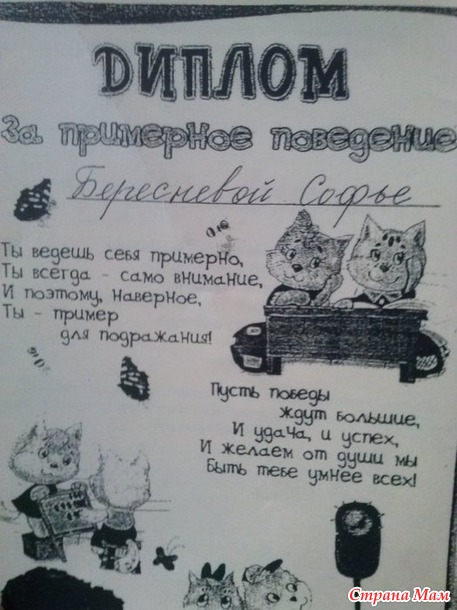 ДИПЛОМ
За примерное поведение
Бересневой Софье
Ты ведешь себя примерно,
Ты всегда - само внимание,
И поэтому, наверное,
Ты - пример
для подражания!
Пусть победы
ждут большие,
И удача, и успех,
И желаем от души мы
Быть тебе умнее всех!
Страна Мам